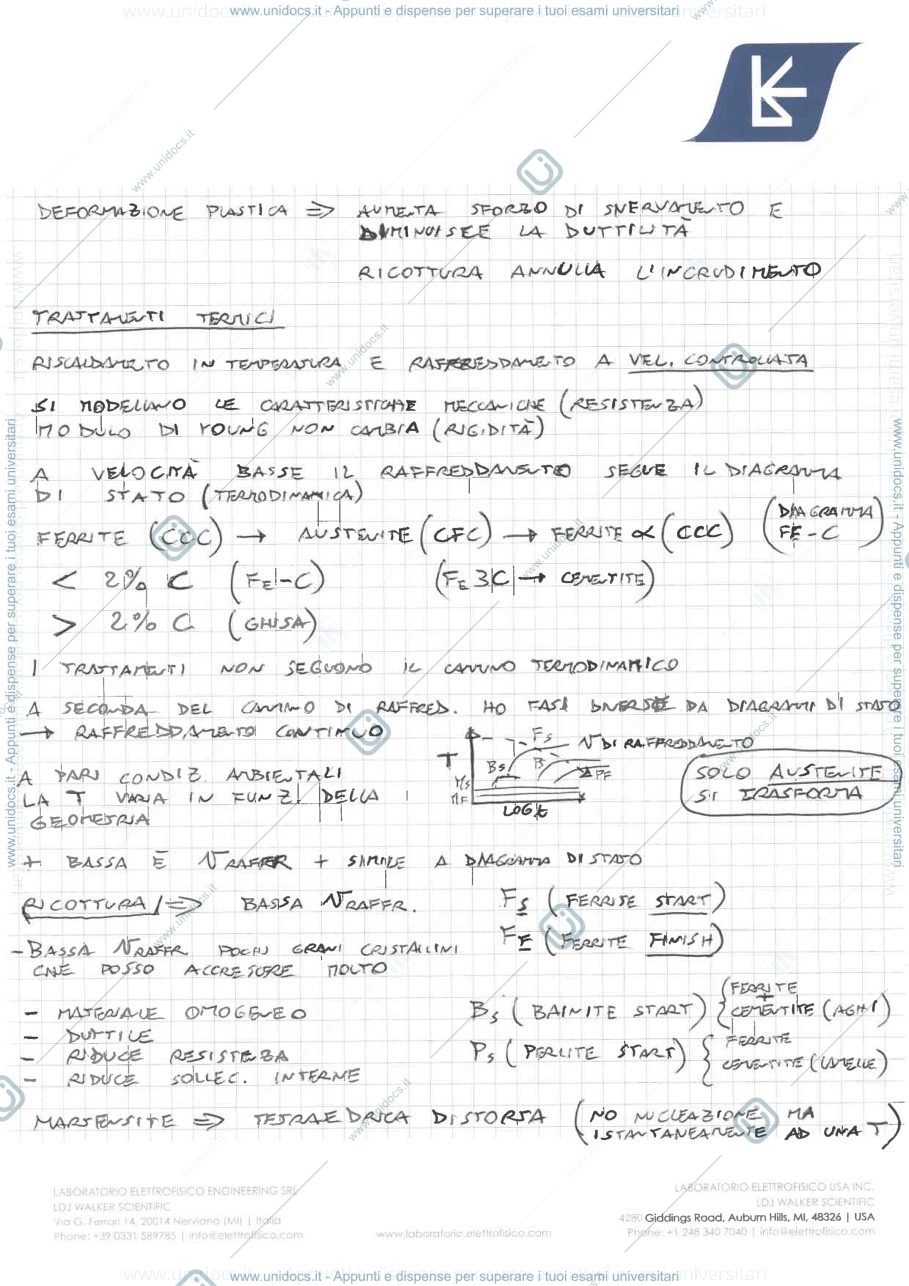 www.unidocs.it - Appunti e dispense per superare i tuoi esami universitari
DEFORMAZIONE PLASTICA => AUMENTA SFORZO DI SNERVAMENTO E
DIMINUISCE LA DUTTILITÀ
RICOTTURA ANNULLA L'INCRUDIMENTO
TRATTAMENTI TERMICI
RISCALDAMENTO IN TEMPERATURA E RAFFREDDAMENTO A VEL. CONTROLLATA
SI MODELLANO LE CARATTERISTICHE MECCANICHE (RESISTENZA)
MODULO DI YOUNG NON CAMBIA (RIGIDITÀ)
A VELOCITÀ BASSE IL RAFFREDDAMENTO SEGUE IL DIAGRAMMA
DI STATO (TERMODINAMICA)
FERRITE (CCC) → AUSTENITE (CFC) → FERRITE α (CCC) (DIAGRAMMA
FE-C)
< 2% C (FE-C) (FE 3C → CEMENTITE)
> 2% C (GHISA)
I TRATTAMENTI NON SEGUONO IL CAMMINO TERMODINAMICO
A SECONDA DEL CAMMINO DI RAFFRED. HO FASI DIVERSE DA DIAGRAMMI DI STATO
→ RAFFREDDAMENTO CONTINUO
A PARI CONDIZ. AMBIENTALI
LA T VARIA IN FUNZ. DELLA
GEOMETRIA
T Fs V DI RAFFREDDAMENTO
Bs PF
Ms
MF
LOG t
SOLO AUSTENITE
SI TRASFORMA
+ BASSA È V RAFFR + SIMILE A DIAGRAMMA DI STATO
RICOTTURA => BASSA V RAFFR.
FS (FERRITE START)
FF (FERRITE FINISH)
- BASSA V RAFFR POCHI GRANI CRISTALLINI
CHE POSSO ACCRESCERE MOLTO
- MATERIALE OMOGENEO
- DUTTILE
- RIDUCE RESISTENZA
- RIDUCE SOLLEC. INTERNE
BS (BAINITE START) {FERRITE
+
CEMENTITE (AGHI)
PS (PERLITE START) {FERRITE
CEMENTITE (LAMELLE)
MARTENSITE => TETRAEDRICA DISTORTA (NO NUCLEAZIONE MA
ISTANTANEAMENTE AD UNA T)
LABORATORIO ELETTROFISICO ENGINEERING SRL
LDJ WALKER SCIENTIFIC
Via G. Ferrari 14, 20014 Nerviano (MI) | Italia
Phone: +39 0331 589785 | info@elettrofisico.com
www.laboratorio.elettrofisico.com
LABORATORIO ELETTROFISICO USA INC.
LDJ WALKER SCIENTIFIC
4280 Giddings Road, Auburn Hills, MI, 48326 | USA
Phone: +1 248 340 7040 | info@elettrofisico.com
www.unidocs.it - Appunti e dispense per superare i tuoi esami universitari